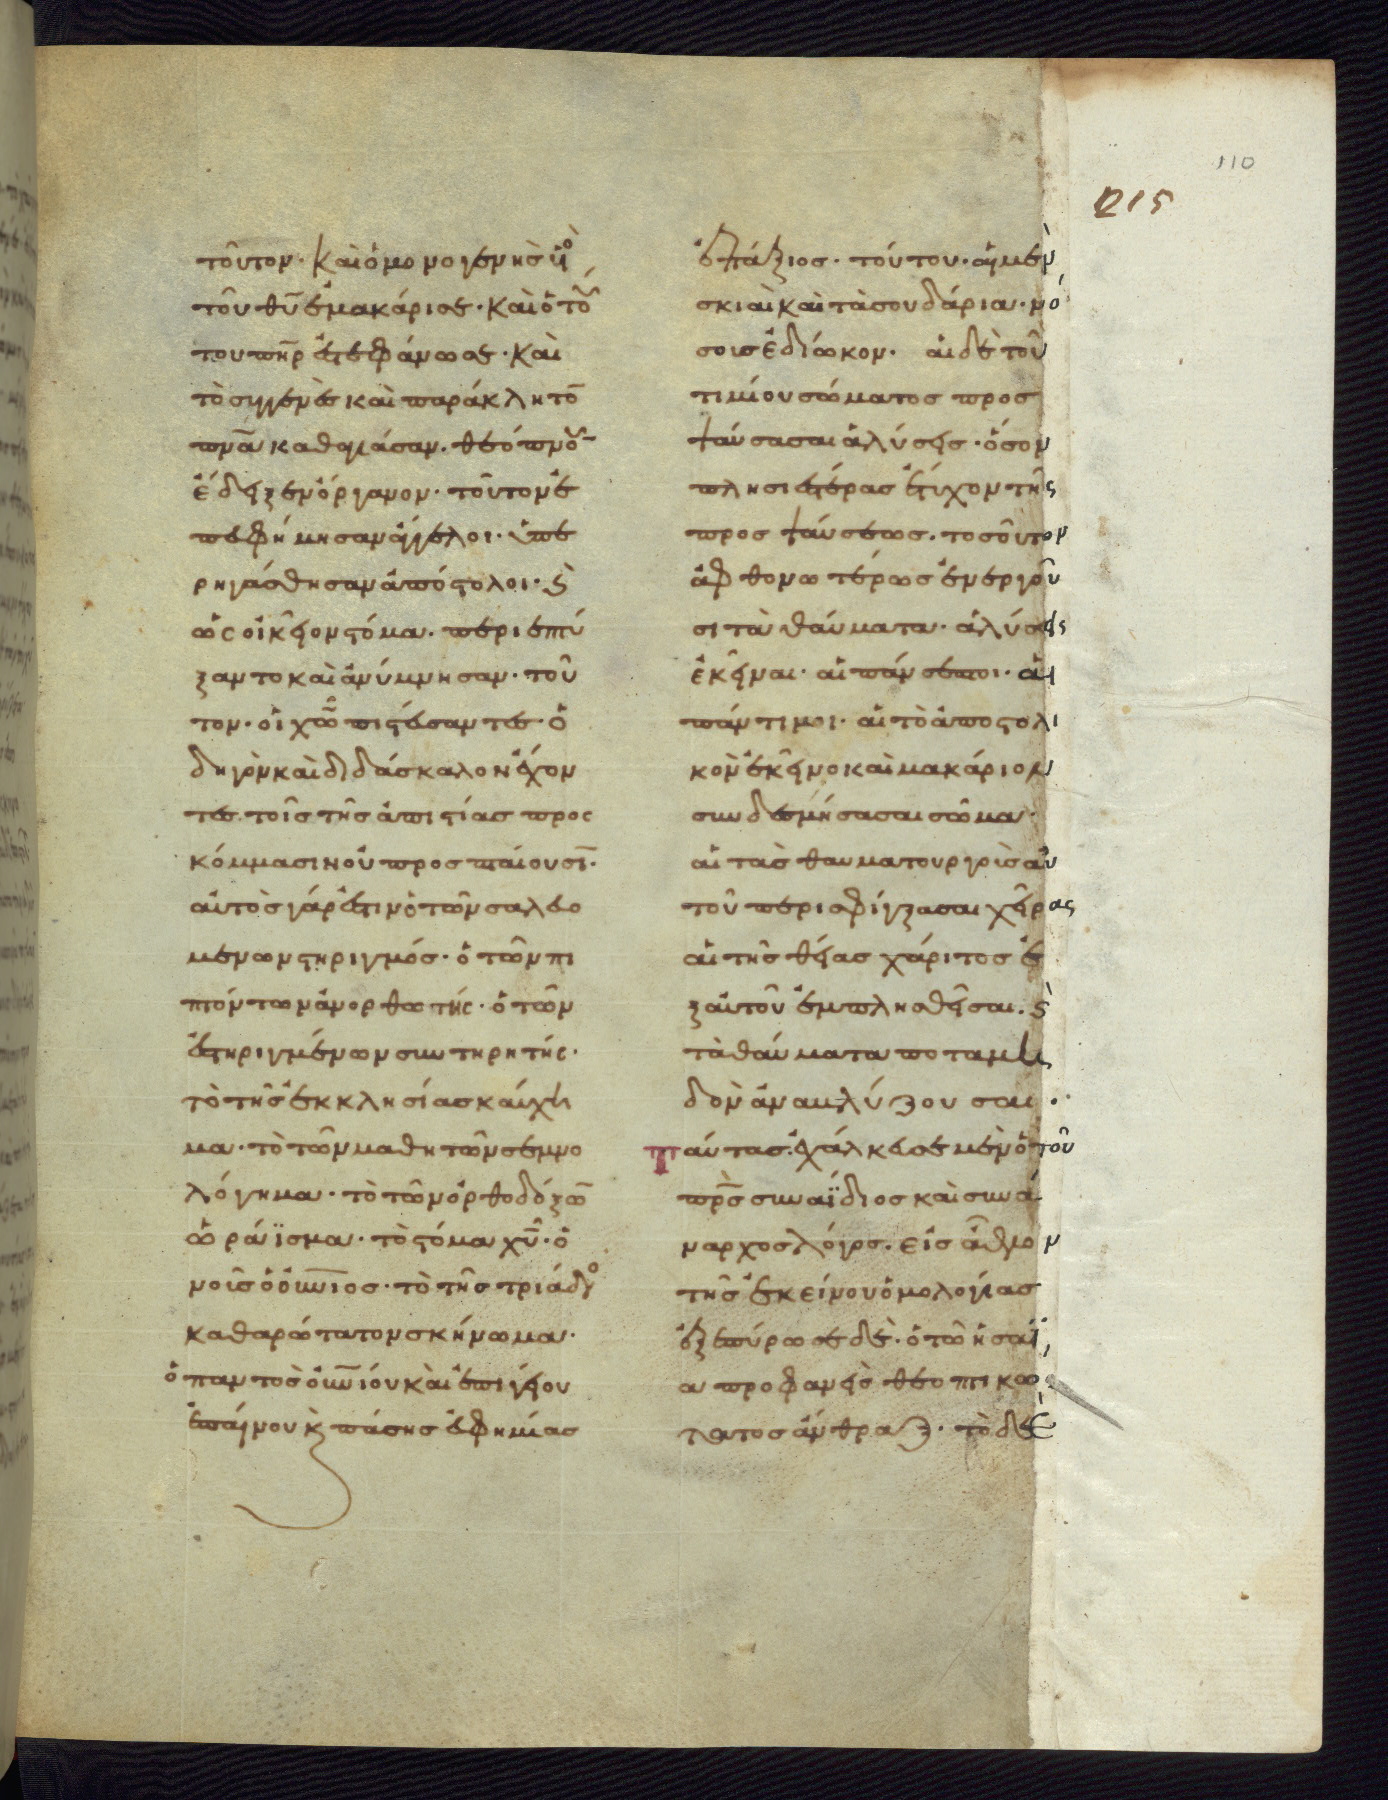 110
215
τοῦτον· καὶ ὁ μονογενὴς υἱὸ
τοῦ θῦ ἐμακάρισε· καὶ ὁ τού
του πηρ ἐστεφάνωσε· καὶ
τὸ συγγενὲς καὶ παράκλητο
πνα καθηγίασαν. θεόπνου
ἔδειξεν ὄργανον· τοῦτον ἐ
πεφήμησαν ἄγγελοι· ὑπε
ρηγάσθησαν ἀπόστολοι· καὶ
ὡς οἰκεῖον στόμα· περιεπτύ
ξαντο καὶ ἀνύμνησαν· τοῦ
τον· οἱ χῶ πιστεύσαντες· ὁ
δηγὸν καὶ διδάσκαλον ἔχον
τες τοῖς τῆς ἀπιστίας προς
κόμμασιν οὐ προσπαίουσι·
αὐτὸς γάρ ἐστιν ὁ τῶν σαλευο
μένων στηριγμός· ὁ τῶν πι
πτόντων ἀνορθωτής· ὁ τῶν
ἐστηριγμένων συντηρητής·
τὸ τῆς ἐκκλησίας καύχη
μα· τὸ τῶν μαθητῶν σεμνο
λόγημα· τὸ τῶν ὀρθοδόξω
ὡράϊσμα· τὸ στόμα χυ· ὁ
νοῖς ὁ οὐνιος· τὸ τῆς τριάδο
καθαρώτατον σκήνωμα·
ὁ παντὸς οὐνιου καὶ ἐπιγείου
ἐπαίνου καὶ πάσης εὐφημίας
ἐπάξιος· τούτου· αἱ μὲν
σκιαὶ καὶ τὰ σουδάρια· νό
σους ἐδίωκον· αἱ δὲ τοῦ
τιμίου σώματος προσ
ψαύσασαι ἁλύσεις· ὅσον
πλησιεστέρας ἔτυχον τῆς
προσψαύσεως. τοσοῦτον
ἀφθονωτέρως ἐνεργοῦ
σι τὰ θαύματα· ἁλύσεις
ἐκεῖναι· αἱ πάνσεπτοι· αἱ
πάντιμοι· αἱ τὸ ἀποστολι
κὸν ἐκεῖνο καὶ μακάριον
συνδεσμήσασαι σῶμα·
αἱ τὰς θαυματουργοὺς αὐ
τοῦ περισφίγξασαι χεῖρας
αἱ τῆς θείας χάριτος ἐ
ξ αὐτοῦ ἐμπλησθεῖσαι. καὶ
τὰ θαύματα ποταμη
δὸν ἀναβλύζουσαι·
Ταύτας ἐχάλκευσε μὲν ὁ τοῦ
πρς συναΐδιος καὶ συνά
ναρχος λόγος. εἰς ἄθλον
τῆς ἐκείνου ὁμολογίας
ἐξεπύρωσε δὲ· ὁ τῶ ἡσαΐ
α προφανεὶς θεοπτικώ
τατος ἄνθραξ· τὸ δὲ